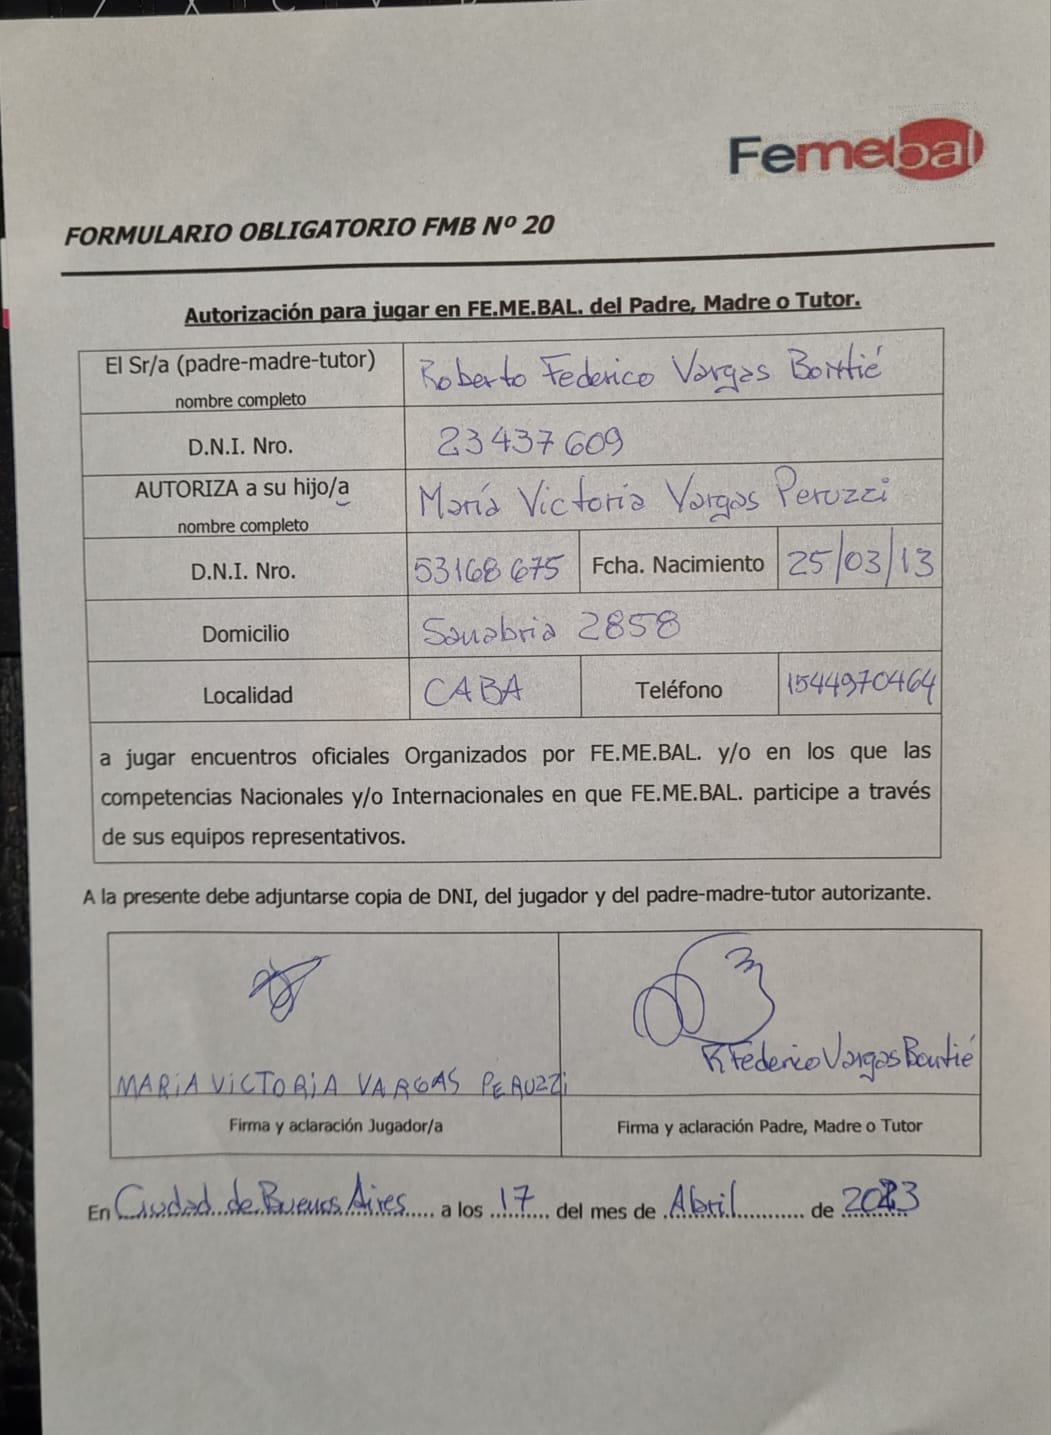 Femebal
FORMULARIO OBLIGATORIO FMB Nº 20
Autorización para jugar en FE.ME.BAL. del Padre, Madre o Tutor.
El Sr/a (padre-madre-tutor)
nombre completo
Roberto Federico Vargas Bontié
D.N.I. Nro.
23437609
AUTORIZA a su hijo/a
nombre completo
María Victoria Vargas Peruzzi
D.N.I. Nro.
53168675
Fcha. Nacimiento
25/03/13
Domicilio
Sanabria 2858
Localidad
CABA
Teléfono
1544970464
a jugar encuentros oficiales Organizados por FE.ME.BAL. y/o en los que las
competencias Nacionales y/o Internacionales en que FE.ME.BAL. participe a través
de sus equipos representativos.
A la presente debe adjuntarse copia de DNI, del jugador y del padre-madre-tutor autorizante.
MARIA VICTORIA VARGAS PERUZZI
R Federico Vargas Bontié
Firma y aclaración Jugador/a
Firma y aclaración Padre, Madre o Tutor
En Ciudad de Buenos Aires a los 17 del mes de Abril de 2023